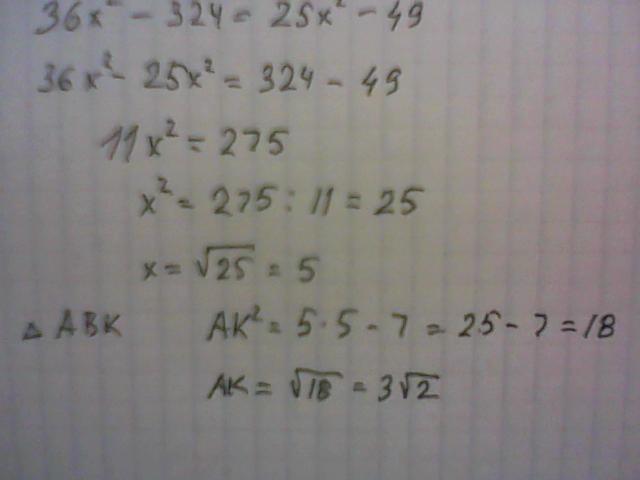 36x² - 324 = 25x² - 49
36x² - 25x² = 324 - 49
11x² = 275
x² = 275 : 11 = 25
x = √25 = 5
△ ABK AK² = 5·5 - 7 = 25 - 7 = 18
AK = √18 = 3√2